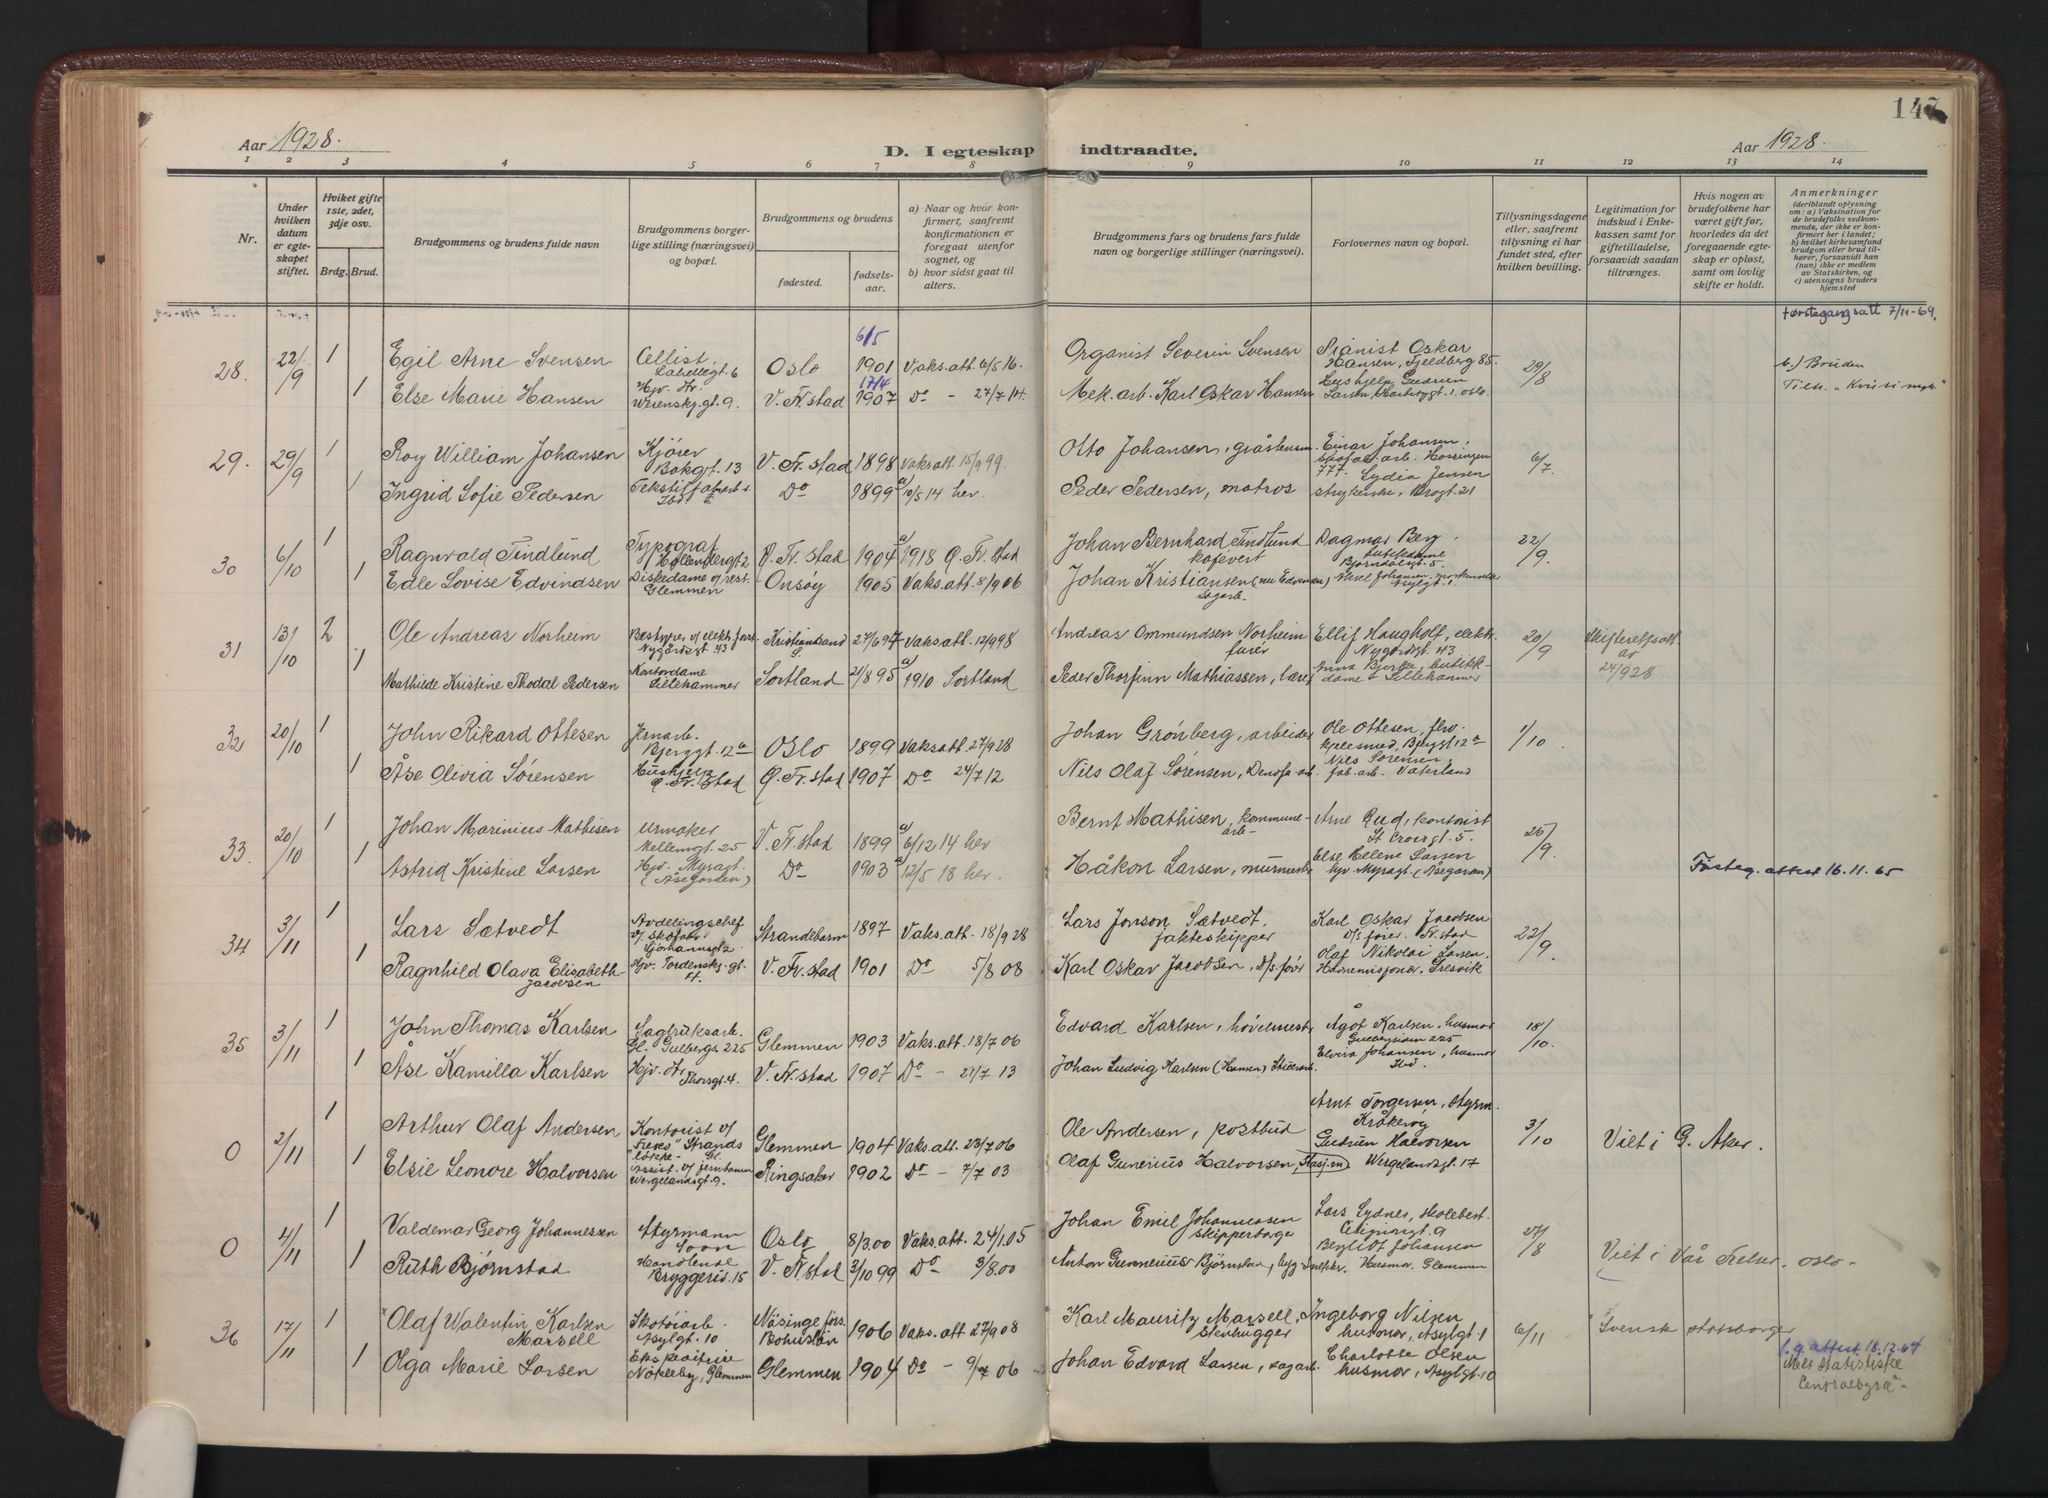 147
Aar 1928.
D. I egteskap indtraadte.
Aar 1928.
1 2 3 4 5 6 7 8 9 10 11 12 13 14
Nr.
Under hvilken datum er egteskapet stiftet.
Hviket gifte 1ste, 2det, 3dje osv.
Brdg. Brud.
Brudgommens og brudens fulde navn
Brudgommens og brudens borgerlige stilling (næringsvei) og bopæl.
Brudgommens og brudens
fødested.
fødselsaar.
a) Naar og hvor konfirmert, saafremt konfirmationen er foregaat utenfor sognet, og
b) hvor sidst gaat til alters.
Brudgommens fars og brudens fars fulde navn og borgerlige stillinger (næringsvei).
Forlovernes navn og bopæl.
Tillysningsdagene eller, saafremt tillysning ei har fundet sted, efter hvilken bevilling.
Legitimation for indskud i Enkekassen samt for giftetilladelse, forsaavidt saadan tiltrænges.
Hvis nogen av brudefolkene har været gift før, hvorledes da det foregaaende egteskap er opløst, samt om lovlig skifte er holdt.
Anmerkninger (deriblandt oplysning om: a) Vaksination for de brudefolks vedkommende, der ikke er konfirmert her i landet; b) hvilket kirkesamfund brudgom eller brud tilhører, forsaavidt han (hun) ikke er medlem av Statskirken, og c) utensogns bruders hjemsted
førstegangsatt 7/11-69.
28. 22/9 1 Egil Arne Svensen Cellist, Labellegt 6 Oslo 6/5 1901 Vaks.att. 6/5 16. Organist Severin Svensen Pianist Oskar Hansen, Gjeldberg 85. 29/8 b.) Bruden
1 Else Marie Hansen Hjv. dtr. Werenskj.gt. 9. V. Fr.stad 17/4 1907 Do - 27/7 14. Mek. arb. Karl Oskar Hansen Hushjelp Gudrun Larsen, oslo.
29. 29/9 1 Roy William Johansen Kjører Bakgt. 13 V. Fr. stad 1898 Vaksatt 15/9 99. Otto Johansen, gråsteinsm. Einar Johansen, skofa. arb. Hassingen 777. 6/7
1 Ingrid Sofie Pedersen Do 1899 a) 10/5 14 her. Peder Pedersen, matros Lydia Jensen strykerske, Brogt. 21
30 6/10 1 Ragnvald Findlund Typograf Hollendergt 2 Ø. Fr. stad 1904 a) 1918 Ø. Fr. stad Johan Bernhard Findlund kafevert Dagmar Berg, butikdame Bjørndalsgt. 5. 22/9.
1 Edle Lovise Edvindsen Diskedame v/ rest. Glemmen Onsøy 1905 Vaks.att. 8/9 06 Johan Kristiansen (nu Edvindsen) sagarb. Aksel Johansen, Asylgt. 1
31 13/10 2 Ole Andreas Norheim Bestyrer v/ elektr. forr. Nygårdsgt 43 Kristiansand S. 27/6 97 Vaksatt. 12/9 98 Andreas Ommundsen Norheim furer Ellif Haugholt, elektr. Nygårdsgt. 43 20/9 Skifterettsatt. av 24/9 28
1 Mathilde Kristine Thodal Pedersen Kontordame Lillehammer Sortland 21/8 95 a) 1910 Sortland Peder Thorfinn Mathiassen, lærer Anna Bjerke, butikkdame - Lillehammer
32 20/10 1 John Rikard Ottesen Jernarb. Bjerggt. 12a Oslo 1899 Vaksatt. 27/9 28 Johan Grønberg, arbeider Ole Ottesen, flv. kjelesmed, Bjerggt 12a 1/10
1 Åse Olivia Sørensen Hushjelp Ø. Fr. stad Ø. Fr. stad 1907 Do 24/7 12 Nils Olaf Sørensen, Denofa-arb. Nils Sørensen fab. arb. Vaterland
33. 20/10 1 Johan Marinius Mathisen Urmaker Mellemgt 25 V. Fr. stad 1899 a) 6/12 14 her Bernt Mathisen, kommunearb- Arne Rud, kontorist St Croixgt. 5. 25/9
1 Astrid Kristine Larsen Hjv. Myragt. (Åsegården) Do 1903 a) 12/5 18 her. Håkon Larsen, murmester Else Helene Larsen hjv. Myragt. (Åsegården) Førsteg. attest 16.11.65
34 3/11 1 Lars Sætvedt Avdelingschef v/ skofabr. Strandebarm 1897 Vaks.att. 18/9 28 Lars Jonson Sætvedt, jakteskipper Karl Oskar Jacobsen D/s fører Fr. stad 22/9.
1 Ragnhild Olava Elisabeth Jacobsen Hjv. Tordenskj. gt. V. Fr. stad 1901 Do 5/8 08 Karl Oskar Jacobsen, D/s fører Olaf Nikolai Larsen, Havnemisjonær, Gresvik
35 3/11 1 John Thomas Karlsen Sagbruksarb. Gl. Gulbergs 225 Glemmen 1903 Vaks.att. 18/7 06 Edvard Karlsen, høvelmester Ågot Karlsen, husmor Gulbergsiden 225 18/10.
1 Åse Kamilla Karlsen Hjv. dtr. Thorsgt. 4. V. Fr. stad 1907 Do - 21/7 13 Johan Ludvig Karlsen (Hansen) Elvira Johansen, husmor Ibid.
0 2/11 1 Arthur Olaf Andersen Kontorist v/ "Freko" Strands Glemmen 1904 Vaks.att. 23/7 06 Ole Andersen, postbud Arnt Torgersen, styrm. Kråkerøy 3/10 Viet i G. Aker.
1 Elsie Leonore Halvorsen Assist. v/ jernbanen Wergelandsgt. 9. Ringsaker 1902 Do - 7/7 03 Olaf Gunerius Halvorsen, Stasj.m. Gudrun Halvorsen Wergelandsgt. 17
0 4/11 1 Valdemar Georg Johannessen Styrmann Soon Oslo 8/3.00 Vaks.att. 24/1.05 Johan Emil Johannessen skipperborge Lars Lydner, skolebest. 27/8 Viet i Vår Frelser, oslo.
1 Ruth Bjørnstad Handlende Bryggerid. 15 V. Fr. stad 3/10 99 Do 3/8.00 Anton Gunnerius Bjørnstad, Bergliot Johansen Husmor, Glemmen
36 17/11 1 "Olaf Walentin Karlsen Marsell Skotøiarb Asylgt. 10 Näsinge förs. Bohuslän 1906 Vaks.att 27/9 08 Karl Mauritz Marsell, stenhugger Ingeborg Nilsen husmor, Asylgt. 1 6/11 "Svensk statsborger
1 Olga Marie Larsen Ekspeditrice Nøkleby, Glemmen Glemmen 1904 Do - 9/7 06 Johan Edvard Larsen, sagarb. Charlotte Olsen husmor, Asylgt. 10
f.g attest 18.12.64
Mel. Statistiske Centralbyrå"-